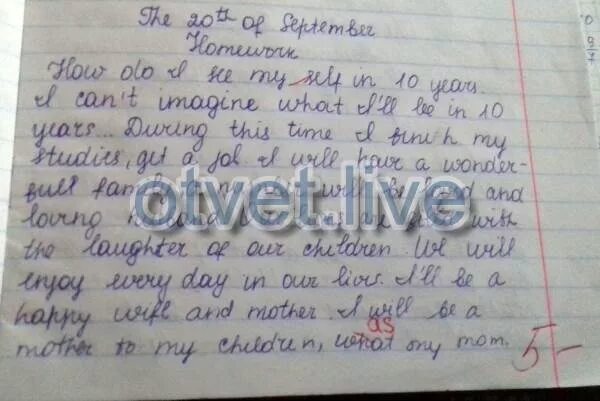 The 20th of September
Homework
How do I see my self in 10 years.
I can't imagine what I'll be in 10
years... During this time I finish my
studies, get a job. I will have a wonder-
full family. My will be and
loving husband. with
the laughter of our children. We will
enjoy every day in our lives. I'll be a
happy wife and mother. I will be a
as
mother to my children, what my mom.
5-
otvet.live